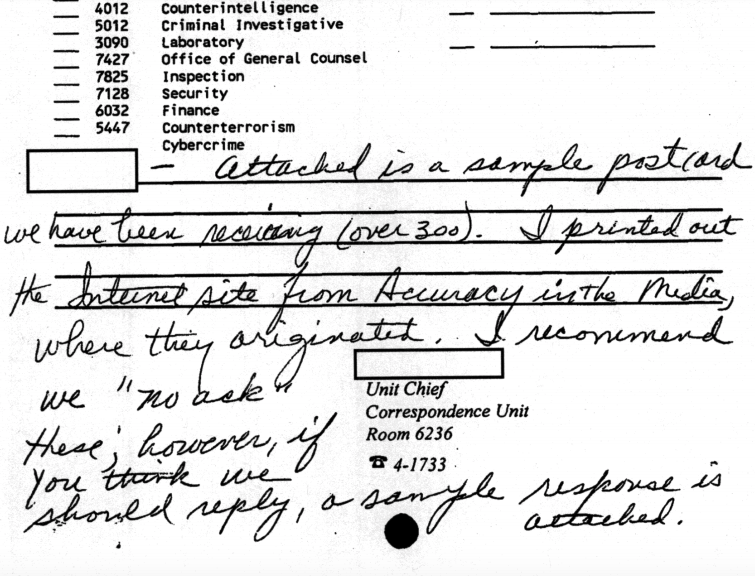 4012 Counterintelligence
5012 Criminal Investigative
3090 Laboratory
7427 Office of General Counsel
7825 Inspection
7128 Security
6032 Finance
5447 Counterterrorism
Cybercrime
— Attached is a sample postcard
we have been receiving (over 300). I printed out
the Internet site from Accuracy in the Media,
where they originated. I recommend
we "no ack"
these; however, if
you think we
should reply, a sample response is
attached.
Unit Chief
Correspondence Unit
Room 6236
☎ 4-1733